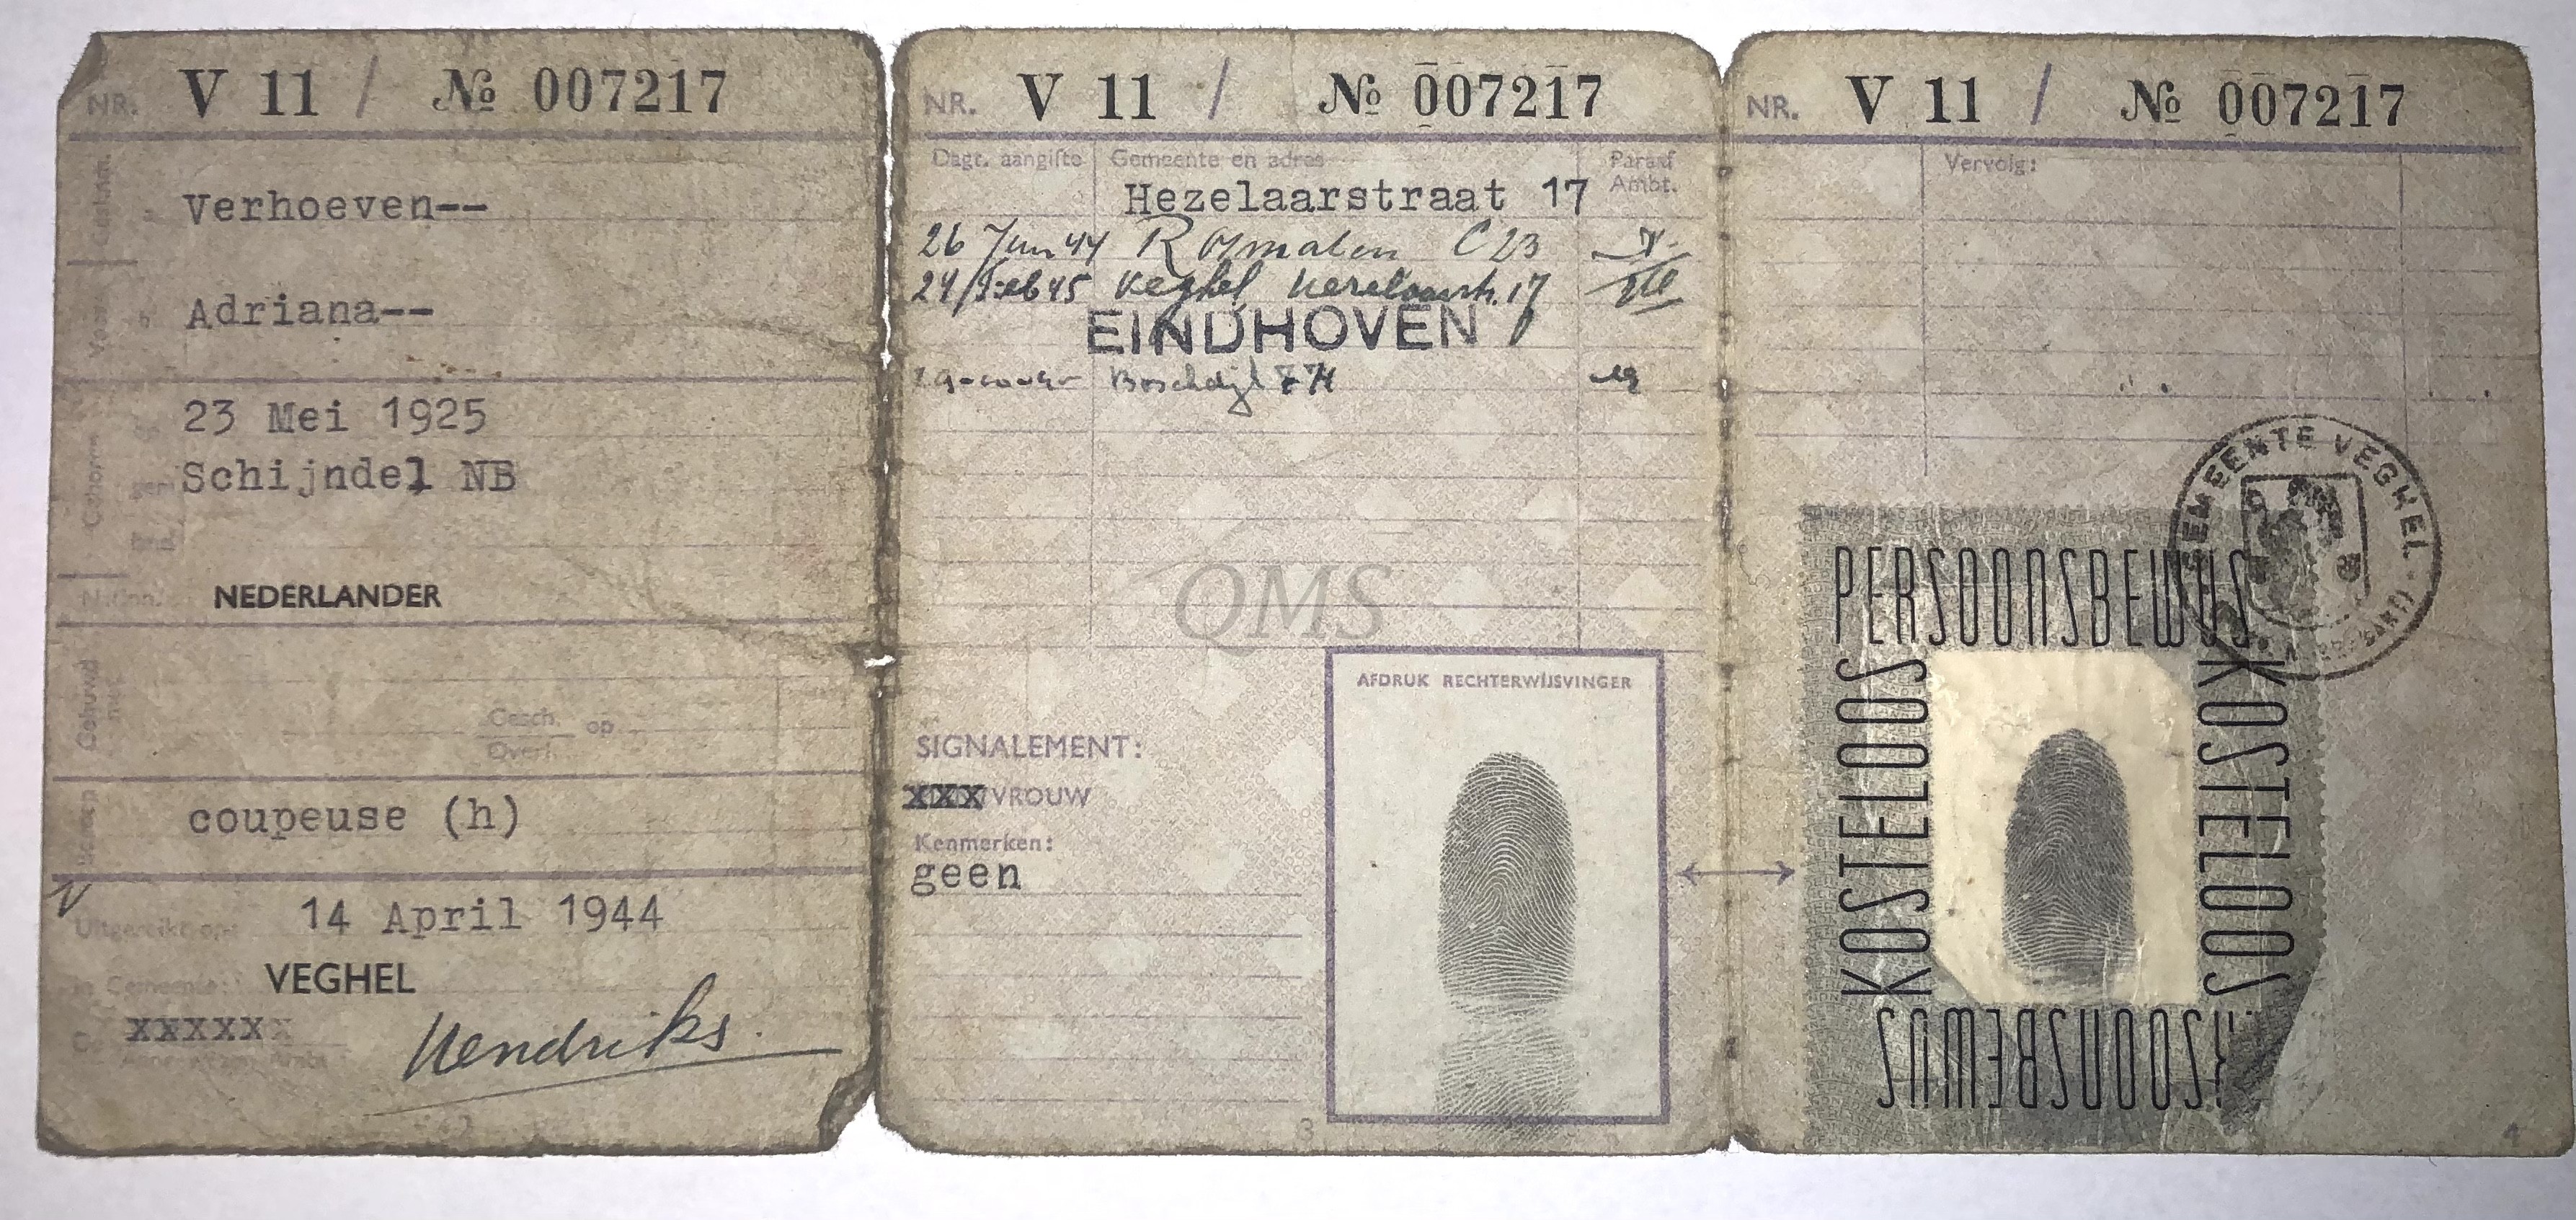 NR. V 11 / № 007217
Verhoeven--
Adriana--
23 Mei 1925
Schijndel NB
NEDERLANDER
Gehuwd met
Gesch. op
Overl.
coupeuse (h)
Uitgereikt op: 14 April 1944
in Gemeente: VEGHEL
De xxxxxx
Hendriks.
NR. V 11 / № 007217
Dagt. aangifte Gemeente en adres Paraaf Ambt.
Hezelaarstraat 17
26 Jun 44 Rosmalen C 23
24/Feb 45 Veghel Hezelaarstr. 17
EINDHOVEN
Boschdijk
QMS
SIGNALEMENT:
xxx/VROUW
Kenmerken:
geen
AFDRUK RECHTERWIJSVINGER
3
NR. V 11 / № 007217
Vervolg:
GEMEENTE VEGHEL
PERSOONSBEWIJS
KOSTELOOS
KOSTELOOS
PERSOONSBEWIJS
4